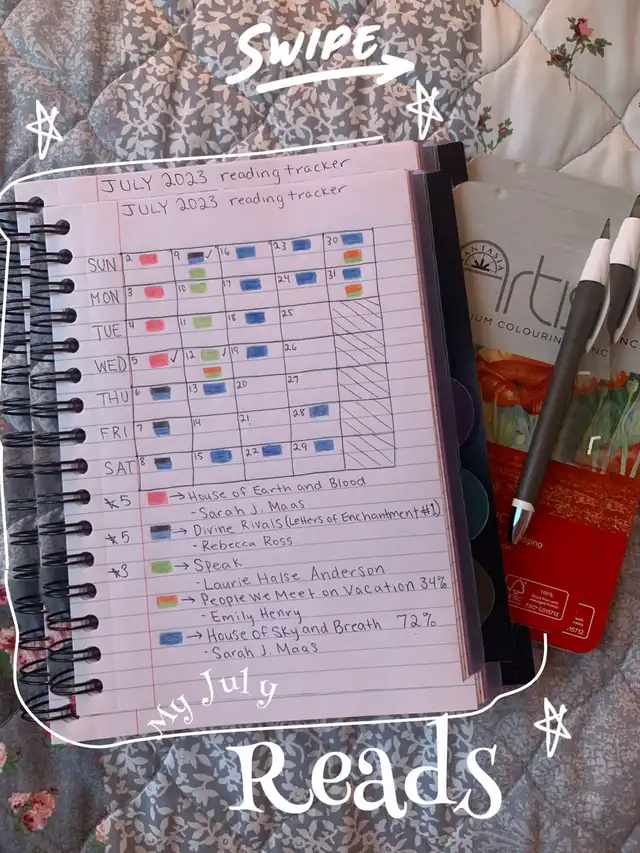 SWIPE
JULY 2023 reading tracker
JULY 2023 reading tracker
SUN 2 9 ✓ 16 23 30
MON 3 10 17 24 31
TUE 4 11 18 25
WED 5 ✓ 12 ✓ 19 26
THU 6 13 20 27
FRI 7 14 21 28
SAT 8 15 22 29
★5 → House of Earth and Blood
- Sarah J. Maas
★5 → Divine Rivals (Letters of Enchantment #1)
- Rebecca Ross
★3 → Speak
- Laurie Halse Anderson
→ People We Meet on Vacation 34%
- Emily Henry
→ House of Sky and Breath 72%
- Sarah J. Maas
My July
Reads
Artis
IUM COLOURING
FSC
100%